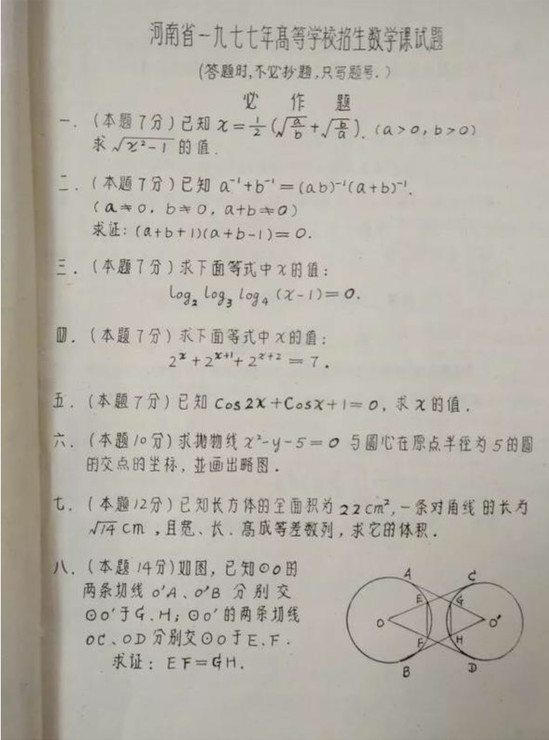 河南省一九七七年高等学校招生数学课试题
(答题时,不必抄题,只写题号.)
必 作 题
一. (本题7分) 已知 x=1/2(√(a/b)+√(b/a)). (a>0, b>0)
求 √(x²-1) 的值.
二. (本题7分) 已知 a⁻¹+b⁻¹=(ab)⁻¹(a+b)⁻¹.
(a≠0, b≠0, a+b≠0)
求证: (a+b+1)(a+b-1)=0.
三. (本题7分) 求下面等式中x的值:
log₂ log₃ log₄ (x-1)=0.
四. (本题7分) 求下面等式中x的值:
2ˣ+2ˣ⁺¹+2ˣ⁺²=7.
五. (本题7分) 已知 Cos2x+Cosx+1=0, 求x的值.
六. (本题10分) 求抛物线 x²-y-5=0 与圆心在原点半径为5的圆
的交点的坐标, 並画出略图.
七. (本题12分) 已知长方体的全面积为22cm², 一条对角线的长为
√14 cm, 且宽、长、高成等差数列, 求它的体积.
八. (本题14分) 如图, 已知⊙O的
两条切线 O'A、O'B 分别交
⊙O'于G、H; ⊙O'的两条切线
OC、OD 分别交⊙O于E、F.
求证: EF=GH.
A C
E G
O O'
F H
B D